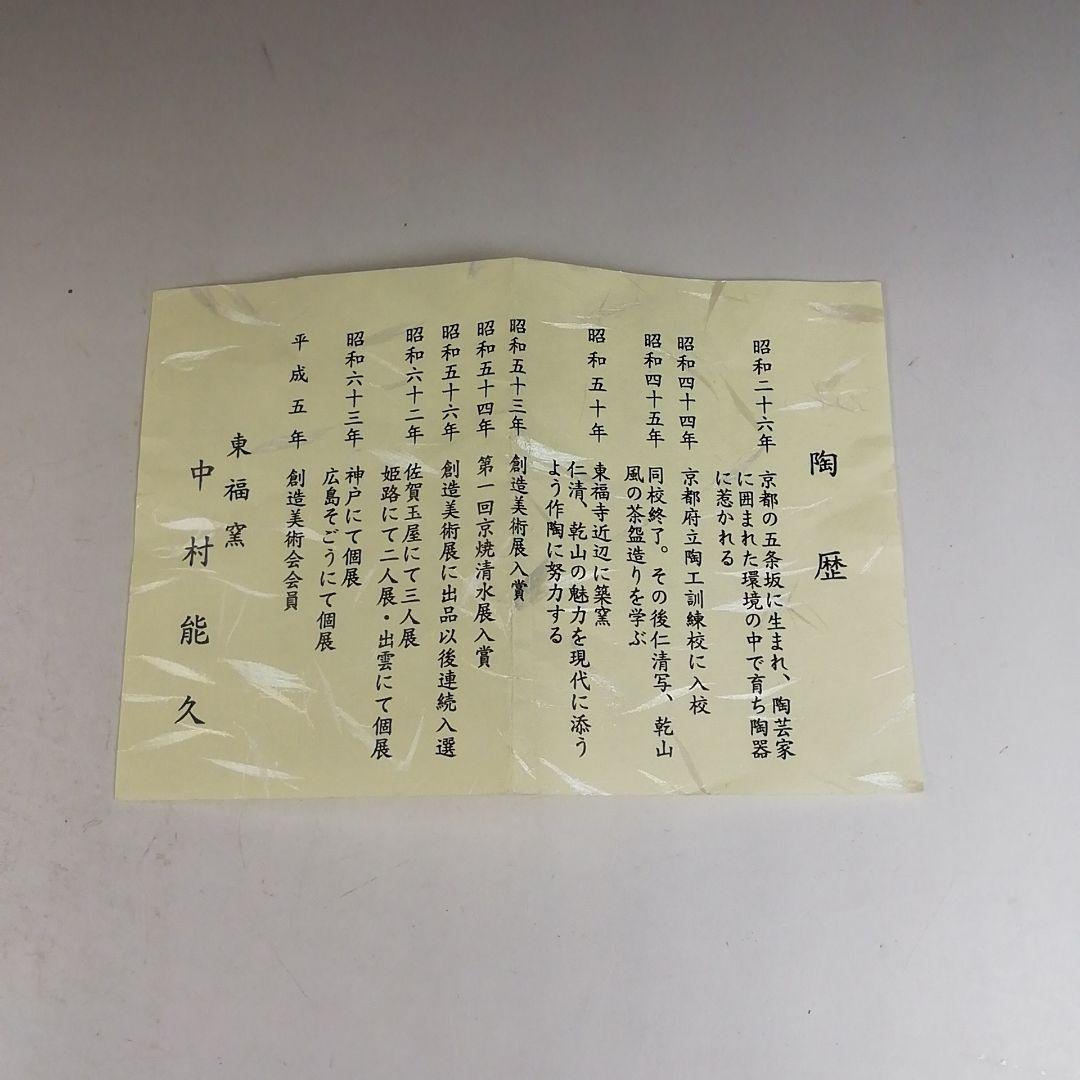 陶歴
昭和二十六年 京都の五条坂に生まれ、陶芸家
に囲まれた環境の中で育ち陶器
に惹かれる
昭和四十四年 京都府立陶工訓練校に入校
昭和四十五年 同校終了。その後仁清写、乾山
風の茶盌造りを学ぶ
昭和五十年 東福寺近辺に築窯
仁清、乾山の魅力を現代に添う
よう作陶に努力する
昭和五十三年 創造美術展入賞
昭和五十四年 第一回京焼清水展入賞
昭和五十六年 創造美術展に出品以後連続入選
昭和六十二年 佐賀玉屋にて三人展
姫路にて二人展・出雲にて個展
昭和六十三年 神戸にて個展
広島そごうにて個展
平成五年 創造美術会会員
東福窯
中村能久